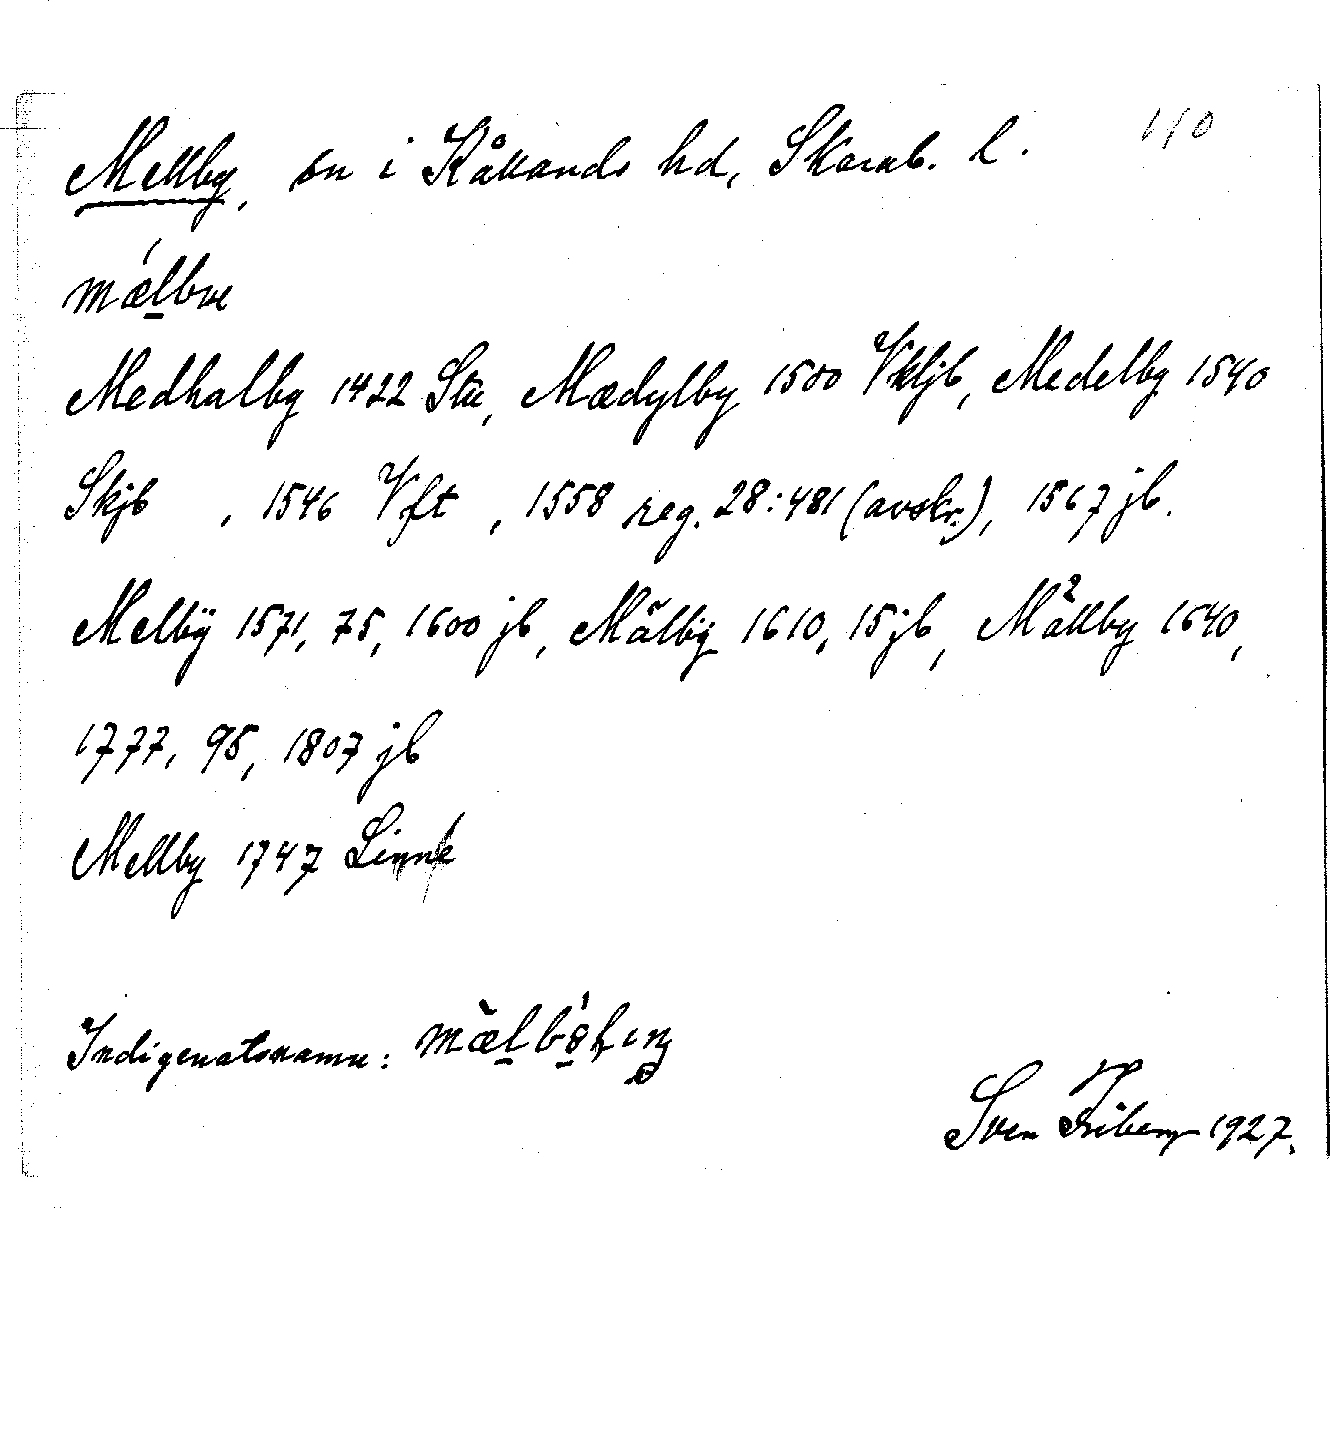 Mellby, sn i Kållands hd, Skarab. l. 110
mælbve
Medhalby 1422 Stu, Mædylby 1500 Vkljb, Medelby 1540
Skjb , 1546 Vft , 1558 reg. 28:481 (avskr.), 1567 jb.
Melbÿ 1571, 75, 1600 jb, Mälbÿ 1610, 15 jb, Mällby 1640,
1777, 95, 1807 jb
Mellby 1747 Linné
Indigenatsnamn:
Sven Friberg 1927.